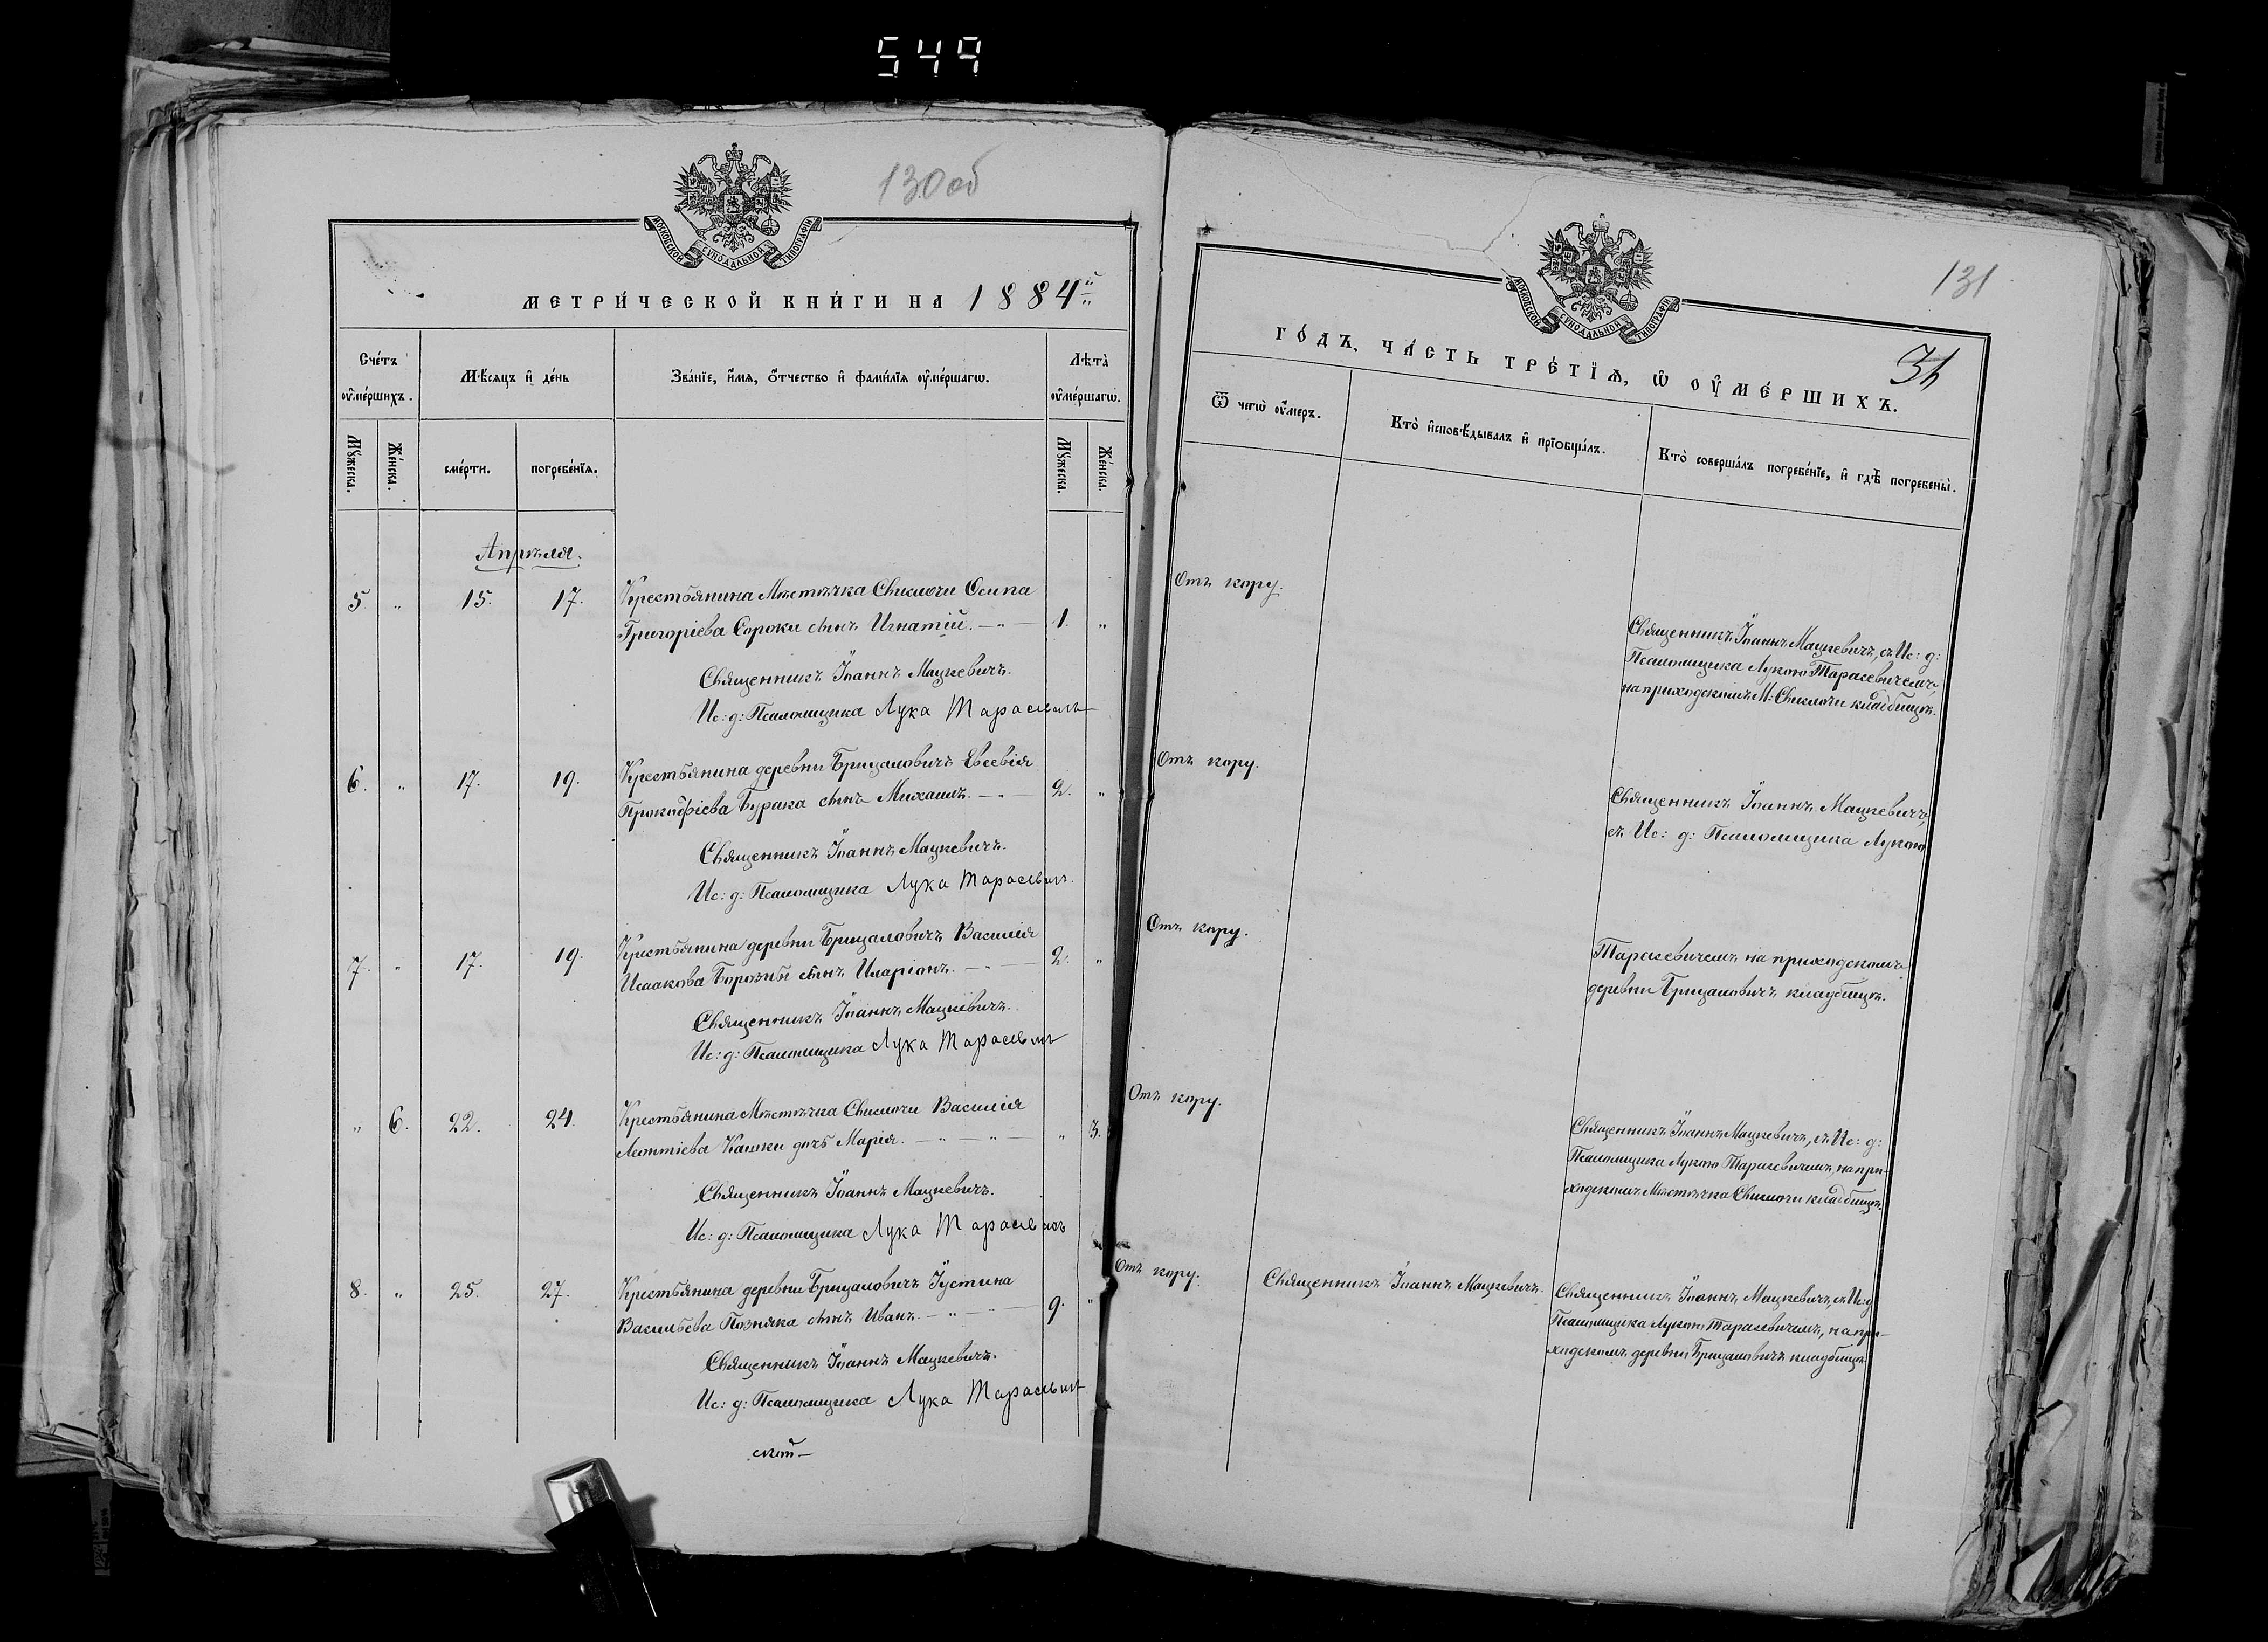 549
130об
МОСКОВСКОЙ СѴНОДАЛЬНОЙ ТИПОГРАФІИ
МЕТРИ́ЧЕСКОЙ КНИ́ГИ НА 1884й
Сче́тъ ᲂу҆ме́ршихъ.
Мѣ́сяцъ и҆ де́нь
Зва́нїе, и҆́мѧ, ѻ҆́тчество и҆ фами́лїѧ ᲂу҆ме́ршагѡ.
Лѣ́та ᲂу҆ме́ршагѡ.
Мꙋ́жеска.
Же́нска.
сме́рти.
погребе́нїѧ.
Мꙋ́жеска.
Же́нска.
Апрѣля.
5. „ 15. 17. Крестьянина Мѣстѣчка Свислочи Осипа
Григоріева Сороки сынъ Игнатій. — „ — 1. „
Священникъ Іоаннъ Мацкевичъ.
Ис: д: Псаломщика Лука Тарасевичъ
6. „ 17. 19. Крестьянина деревни Брицаловичъ Евсевія
Прокофіева Бурака сынъ Михаилъ. — „ — 2. „
Священникъ Іоаннъ Мацкевичъ.
Ис: д: Псаломщика Лука Тарасевичъ.
7. „ 17. 19. Крестьянина деревни Брицаловичъ Василія
Исаакова Борозны сынъ Иларіонъ. — „ — 2. „
Священникъ Іоаннъ Мацкевичъ.
Ис: д: Псаломщика Лука Тарасевичъ
„ 6. 22. 24. Крестьянина Мѣстѣчка Свислочи Василія
Леонтіева Кашки дочь Марія. — „ — „ — „ 3.
Священникъ Іоаннъ Мацкевичъ.
Ис: д: Псаломщика Лука Тарасевичъ
8. „ 25. 27. Крестьянина деревни Брицаловичъ Іустина
Васильева Позняка сынъ Иванъ. — „ — „ — 9. „
Священникъ Іоаннъ Мацкевичъ.
Ис: д: Псаломщика Лука Тарасевичъ
131
МОСКОВСКОЙ СѴНОДАЛЬНОЙ ТИПОГРАФІИ
ГО́ДЪ, ЧА́СТЬ ТРЕ́ТЇѦ, Ѡ҆ ОУ҆МЕ́РШИХЪ.
Ѿ чегѡ̀ ᲂу҆́меръ.
Кто̀ и҆сповѣ́дывалъ и҆ прїѡбща́лъ.
Кто̀ соверша́лъ погребе́нїе, и҆ гдѣ̀ погребены̀.
Отъ кору.
Священникъ Іоаннъ Мацкевичъ, съ Ис: д:
Псаломщика Лукою Тарасевичемъ,
на приходскомъ М: Свислочи кладбищѣ.
Отъ кору.
Священникъ Іоаннъ Мацкевичъ,
съ Ис: д: Псаломщика Лукою
Отъ кору.
Тарасевичемъ на приходскомъ
деревни Брицаловичъ кладбищѣ.
Отъ кору.
Священникъ Іоаннъ Мацкевичъ, съ Ис: д:
Псаломщика Лукою Тарасевичемъ, на при-
ходскомъ Мѣстѣчка Свислочи кладбищѣ.
Отъ кору. Священникъ Іоаннъ Мацкевичъ. Священникъ Іоаннъ Мацкевичъ, съ Ис: д
Псаломщика Лукою Тарасевичемъ, на при-
ходскомъ деревни Брицаловичъ кладбищѣ.